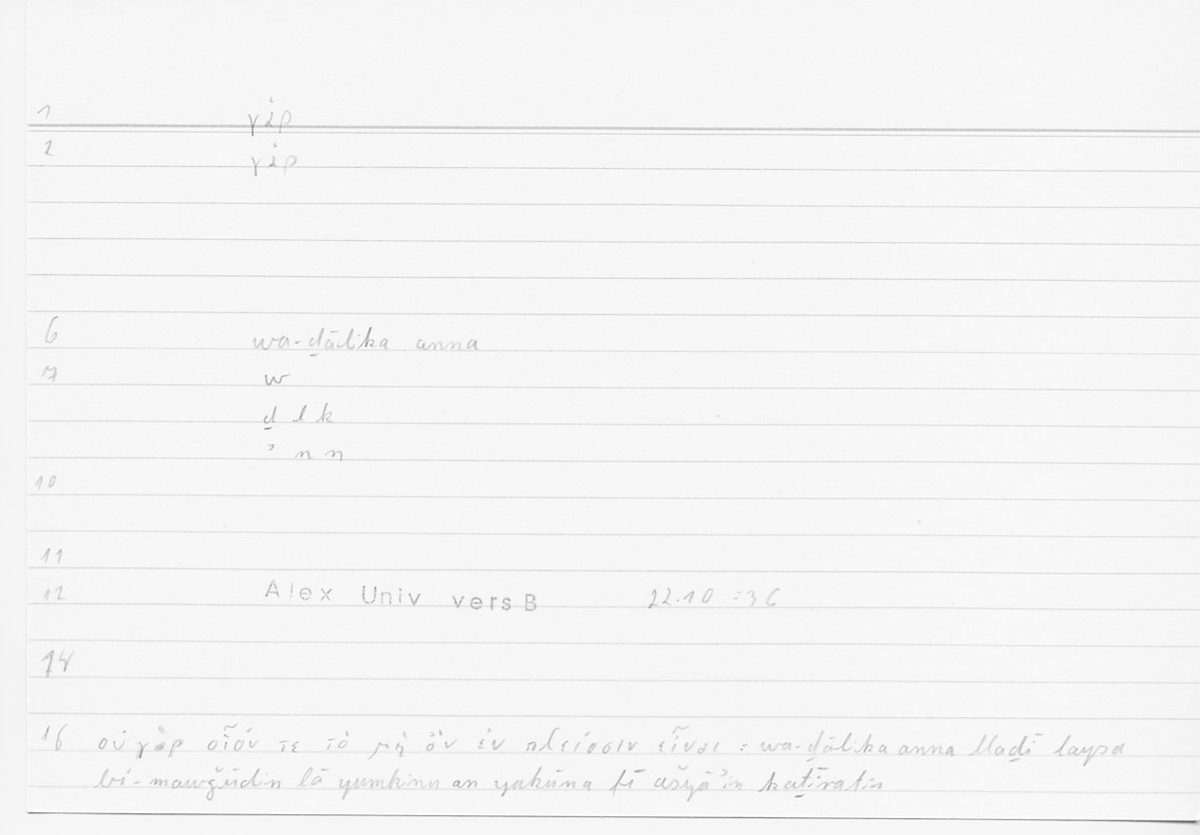 1 γάρ
2 γάρ
6 wa-ḏālika anna
7 w
ḏ l k
ʾ n n
10
11
12 Alex Univ vers B 22.10 = 36
14
16 οὐ γὰρ οἷόν τε τὸ μὴ ὂν ἐν πλείοσιν εἶναι = wa-ḏālika anna lladī laysa
bi-mawǧūdin lā yumkinu an yakūna fī ašyāʾin kaṯīratin